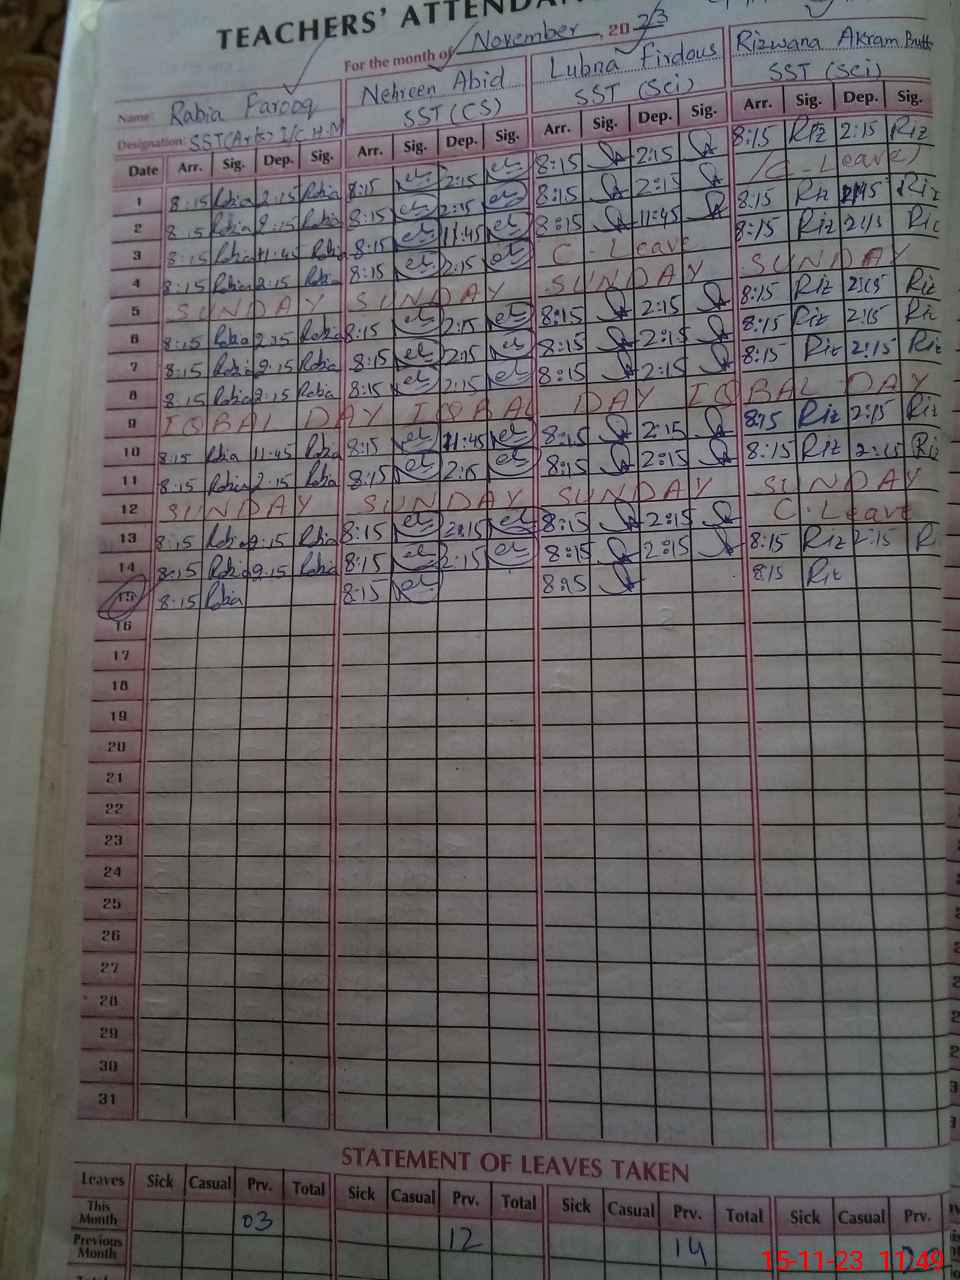 TEACHERS' ATTENDAN
For the month of November, 2023
Name: Rabia Farooq Nehreen Abid Lubna Firdous Rizwana Akram Butt
Designation: SST(Arts) I/C H.M SST (CS) SST (Sci) SST (Sci)
Date Arr. Sig. Dep. Sig. Arr. Sig. Dep. Sig. Arr. Sig. Dep. Sig. Arr. Sig. Dep. Sig.
1 8:15 Rabia 2:15 Rabia 8:15 2:15 8:15 2:15 8:15 Riz 2:15 Riz
2 8:15 Rabia 2:15 Rabia 8:15 2:15 8:15 2:15 C-Leave
3 8:15 Rabia 11:45 Rabia 8:15 11:45 8:15 11:45 8:15 Riz Riz
4 8:15 Rabia 2:15 Rabia 8:15 2:15 C-Leave 8:15 Riz 2:15 Riz
5 SUNDAY SUNDAY SUNDAY SUNDAY
6 8:15 Rabia 2:15 Rabia 8:15 2:15 8:15 2:15 8:15 Riz 2:15 Riz
7 8:15 Rabia 2:15 Rabia 8:15 2:15 8:15 2:15 8:15 Riz 2:15 Riz
8 8:15 Rabia 2:15 Rabia 8:15 2:15 8:15 2:15 8:15 Riz 2:15 Riz
9 IQBAL DAY IQBAL DAY IQBAL DAY
10 8:15 Rabia 11:45 Rabia 8:15 11:45 8:15 2:15 8:15 Riz 2:15 Riz
11 8:15 Rabia 2:15 Rabia 8:15 2:15 8:15 2:15 8:15 Riz 2:15 Riz
12 SUNDAY SUNDAY SUNDAY SUNDAY
13 8:15 Rabia 2:15 Rabia 8:15 2:15 8:15 2:15 C-Leave
14 8:15 Rabia 2:15 Rabia 8:15 2:15 8:15 2:15 8:15 Riz 2:15 R
15 8:15 Rabia 8:15 8:15 8:15 Riz
16
17
18
19
20
21
22
23
24
25
26
27
28
29
30
31
STATEMENT OF LEAVES TAKEN
Leaves Sick Casual Prv. Total Sick Casual Prv. Total Sick Casual Prv. Total Sick Casual Prv.
This Month 03
Previous Month 12 14
15-11-23 11:49